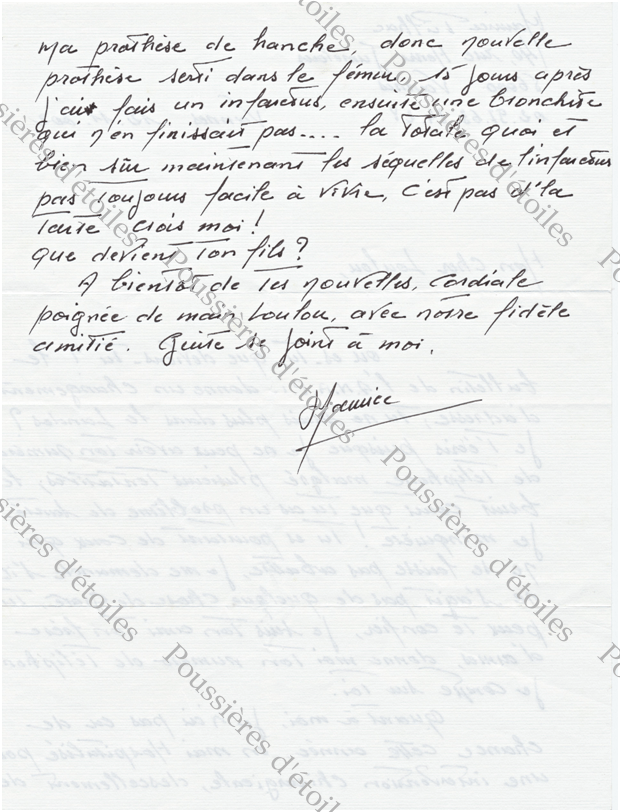 ma prothèse de hanche, donc nouvelle
prothèse serti dans le fémur, 15 jours après
j'ai fais un infarctus, ensuite une bronchite
qui n'en finissait pas.... la totale quoi et
bien sûr maintenant les séquelles de l'infarctus
pas toujours facile à vivre, c'est pas d'la
tarte crois moi!
que devient ton fils?
A bientôt de tes nouvelles, cordiale
poignée de main Loulou, avec notre fidèle
amitié. se joint à moi.
Maurice
Poussières d'étoiles